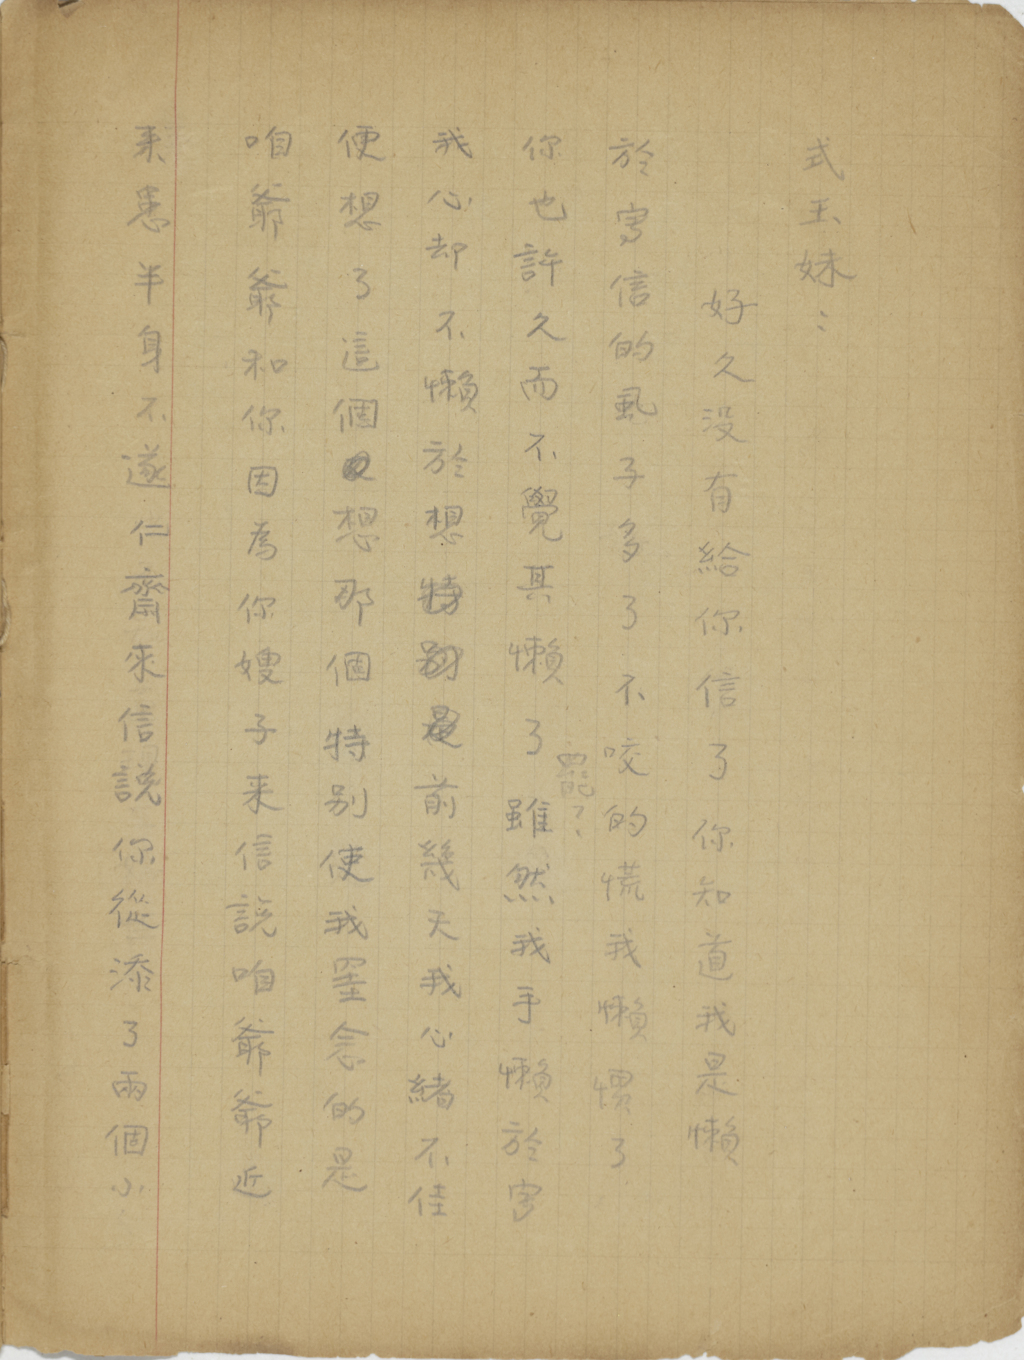 式玉妹：
好久没有給你信了你知道我是懶
於寫信的虱子多了不咬的慌我懶慣了
罷了
你也許久而不覺其懶了雖然我手懶於寫
我心却不懶於想特别是前幾天我心緒不佳
便想了這個又想那個特别使我罣念的是
咱爺爺和你因為你嫂子来信説咱爺爺近
来患半身不遂仁齋來信説你從添了兩個小